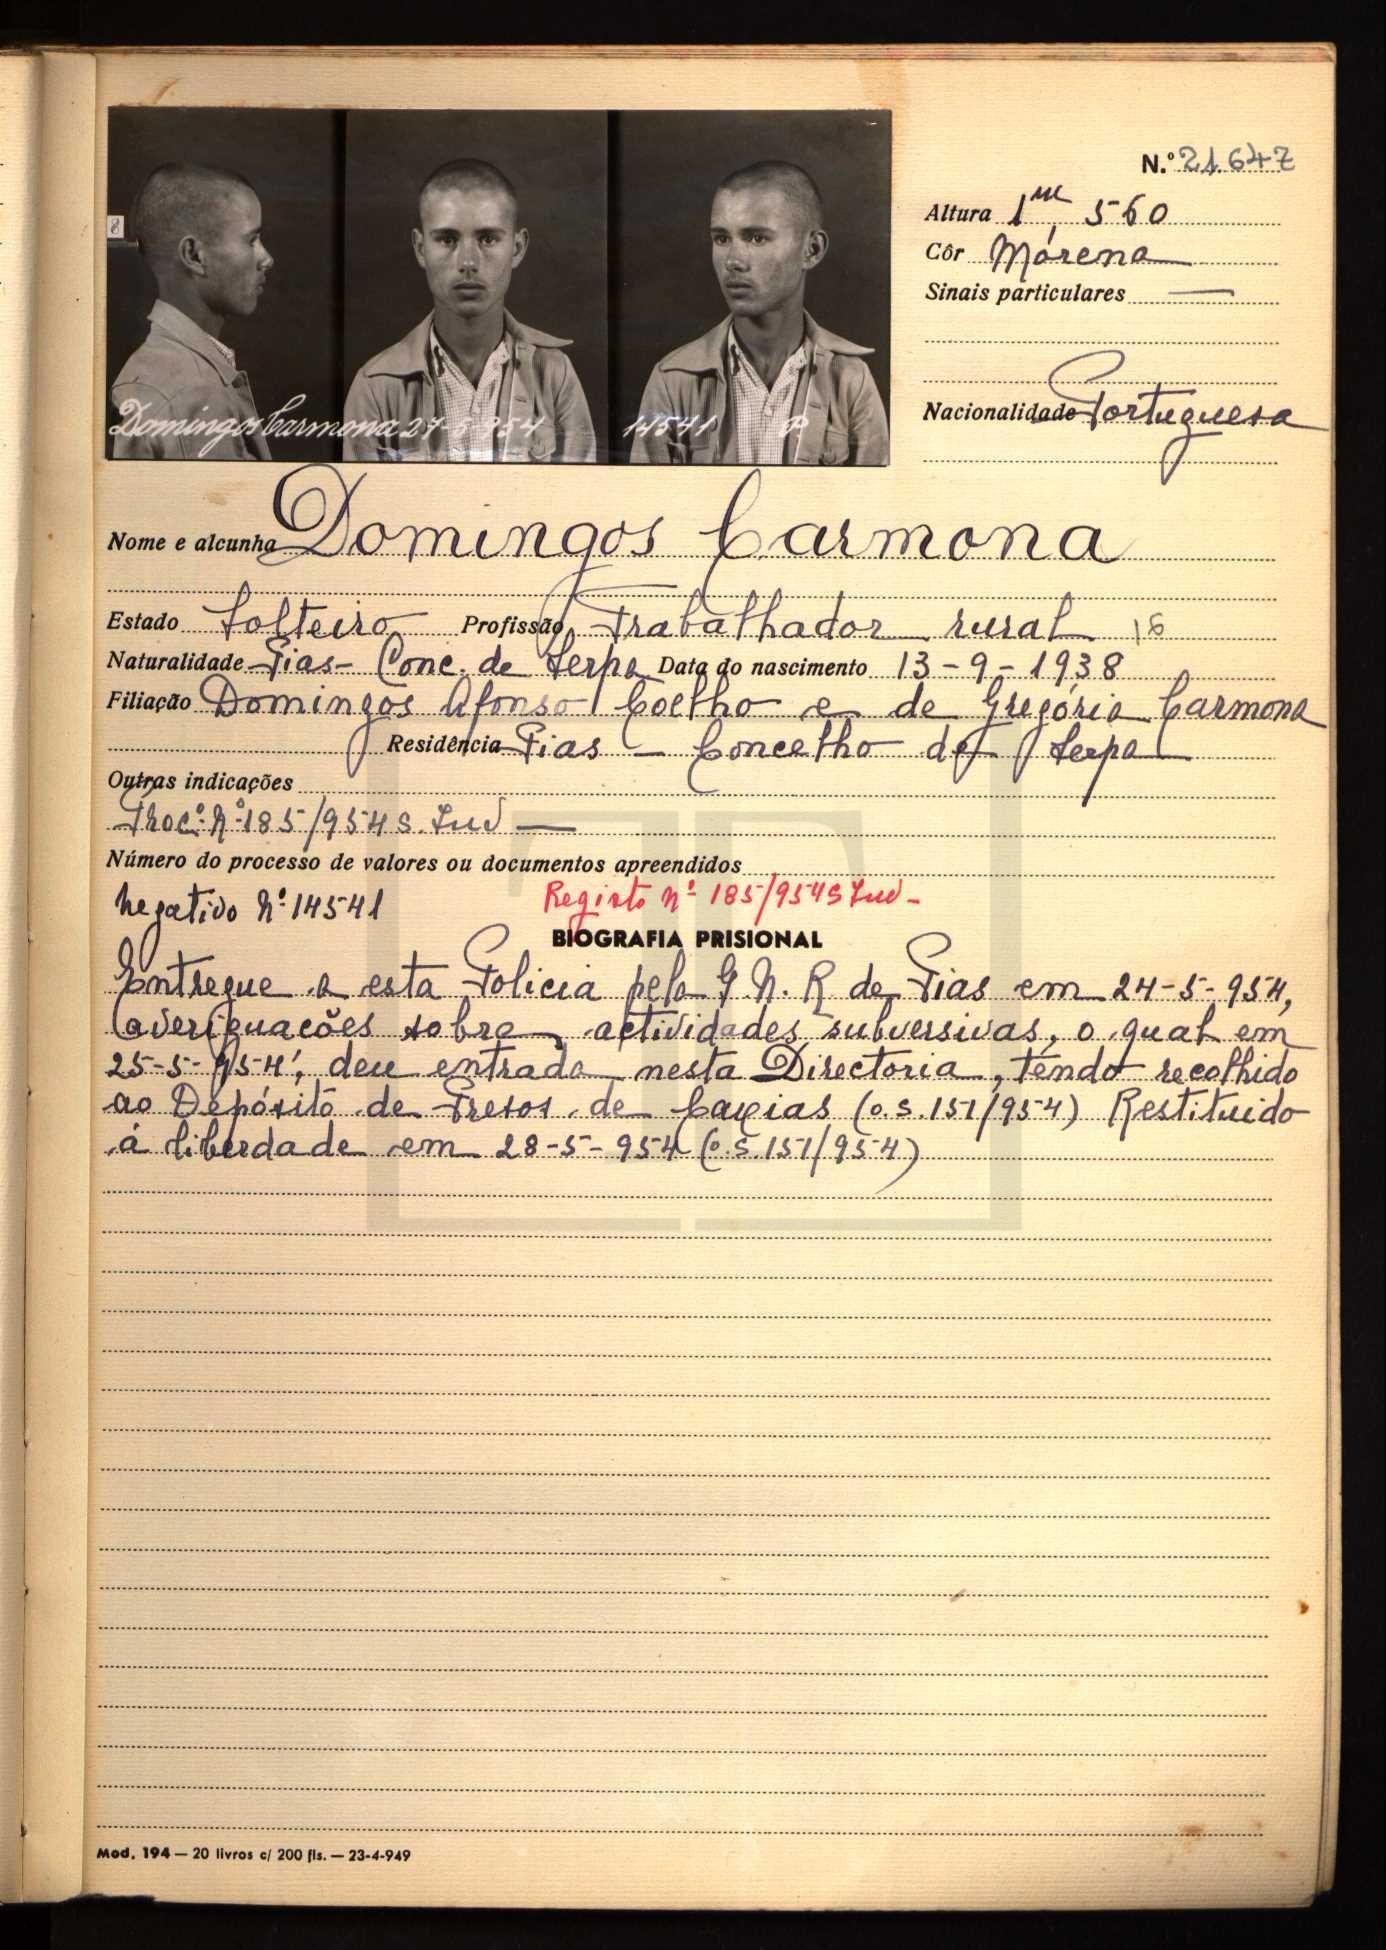 8
Domingos Carmona 27-5-954 14541 P
N.º 21.647
Altura 1m, 560
Côr Môrena
Sinais particulares —
Nacionalidade Portuguesa
Nome e alcunha Domingos Carmona
Estado Solteiro Profissão Trabalhador rural 16
Naturalidade Pias - Conc. de Serpa Data do nascimento 13-9-1938
Filiação Domingos Afonso Coelho e de Gregória Carmona
Residência Pias — Concelho de Serpa
Outras indicações
Proc.º N.º 185/954 S. Ind —
Número do processo de valores ou documentos apreendidos
Negativo N.º 14541 Registo Nº 185/954 S Ind -
BIOGRAFIA PRISIONAL
Entregue a esta Policia pela G. N. R de Pias em 24-5-954,
averiguacões sobre actividades subversivas, o qual em
25-5-954, deu entrada nesta Directoria, tendo recolhido
ao Depósito de Presos de Caxias (o.s.151/954) Restituido
á liberdade em 28-5-954 (o.s.151/954)
Mod. 194 — 20 livros c/ 200 fls. — 23-4-949